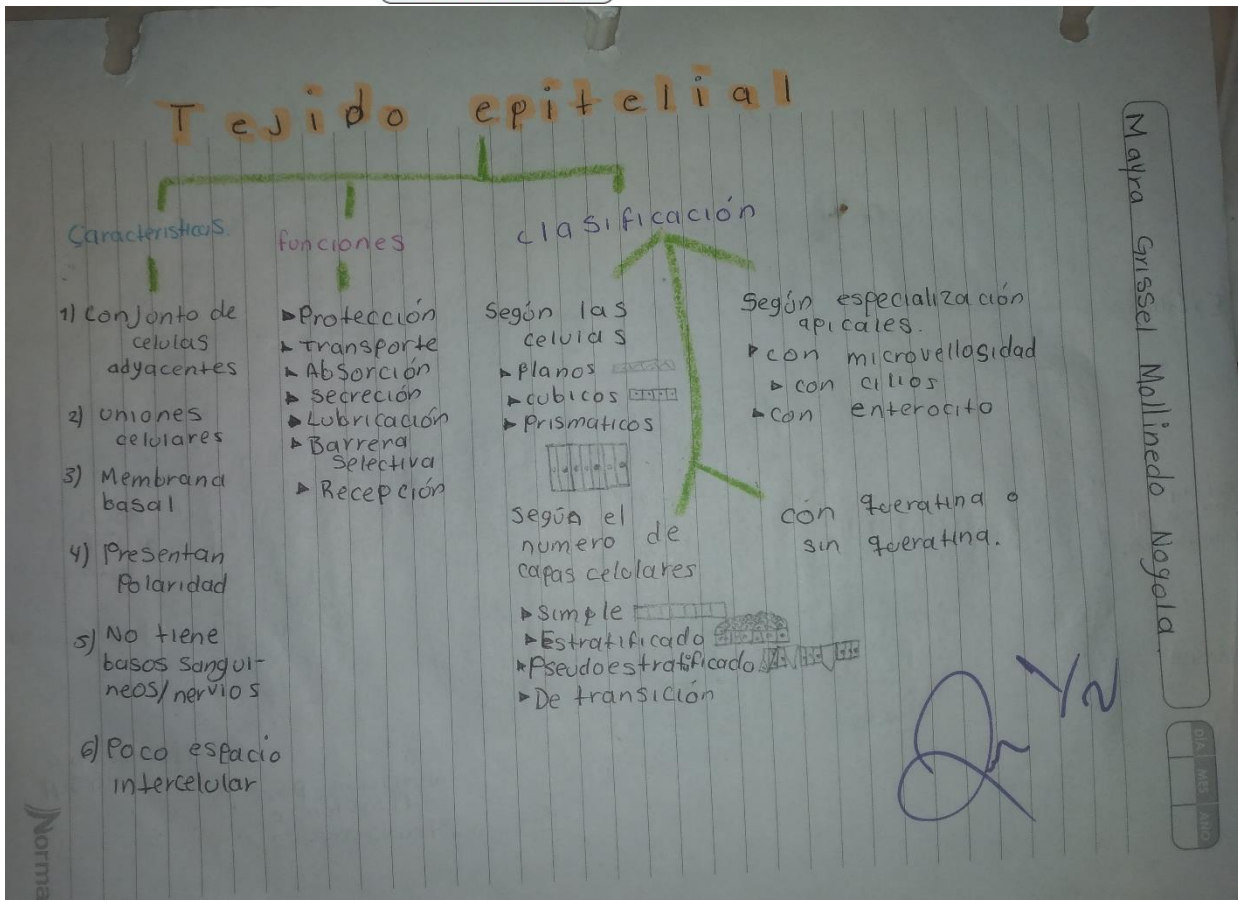 Tejido epitelial
Caracteristicas.
1) Conjunto de
celulas
adyacentes
2) Uniones
celulares
3) Membrana
basal
4) Presentan
Polaridad
5) No tiene
basos sangui-
neos/nervios
6) Poco espacio
intercelular
funciones
Protección
Transporte
Absorción
Secreción
Lubricación
Barrera
Selectiva
Recepción
clasificación
Según las
celulas
Planos
cubicos
Prismaticos
Según el
numero de
capas celulares
Simple
Estratificado
Pseudoestratificado
De transición
Según especialización
apicales.
con microvellosidad
con cilios
con enterocito
con queratina o
sin queratina.
Mayra Grissel Mollinedo Nogola.
DÍA MES AÑO
Norma